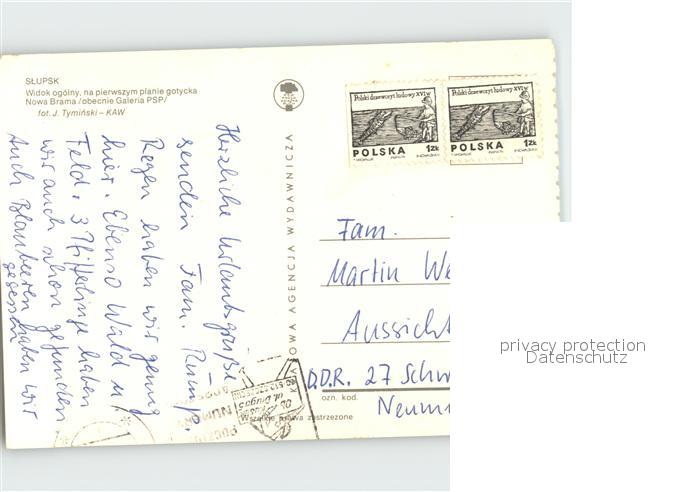 SŁUPSK
Widok ogólny, na pierwszym planie gotycka
Nowa Brama /obecnie Galeria PSP/
fot. J. Tymiński – KAW
Herzliche Urlaubsgrüße
senden Fam. Rümp.
Regen haben wir genug
hier. Ebenso Wald u.
Feld. 3 Pfifferlinge haben
wir auch schon gefunden
Auch Blaubeeren haben wir
gegessen
OWA AGENCJA WYDAWNICZA
Polski drzeworyt ludowy XVI w
POLSKA 1zł
Polski drzeworyt ludowy XVI w
POLSKA 1zł
Fam.
Martin We
Aussicht
D.D.R. 27 Schw
Neum
ozn. kod.
Wszelkie prawa zastrzeżone
ul. Długa 5
NUMER
privacy protection
Datenschutz